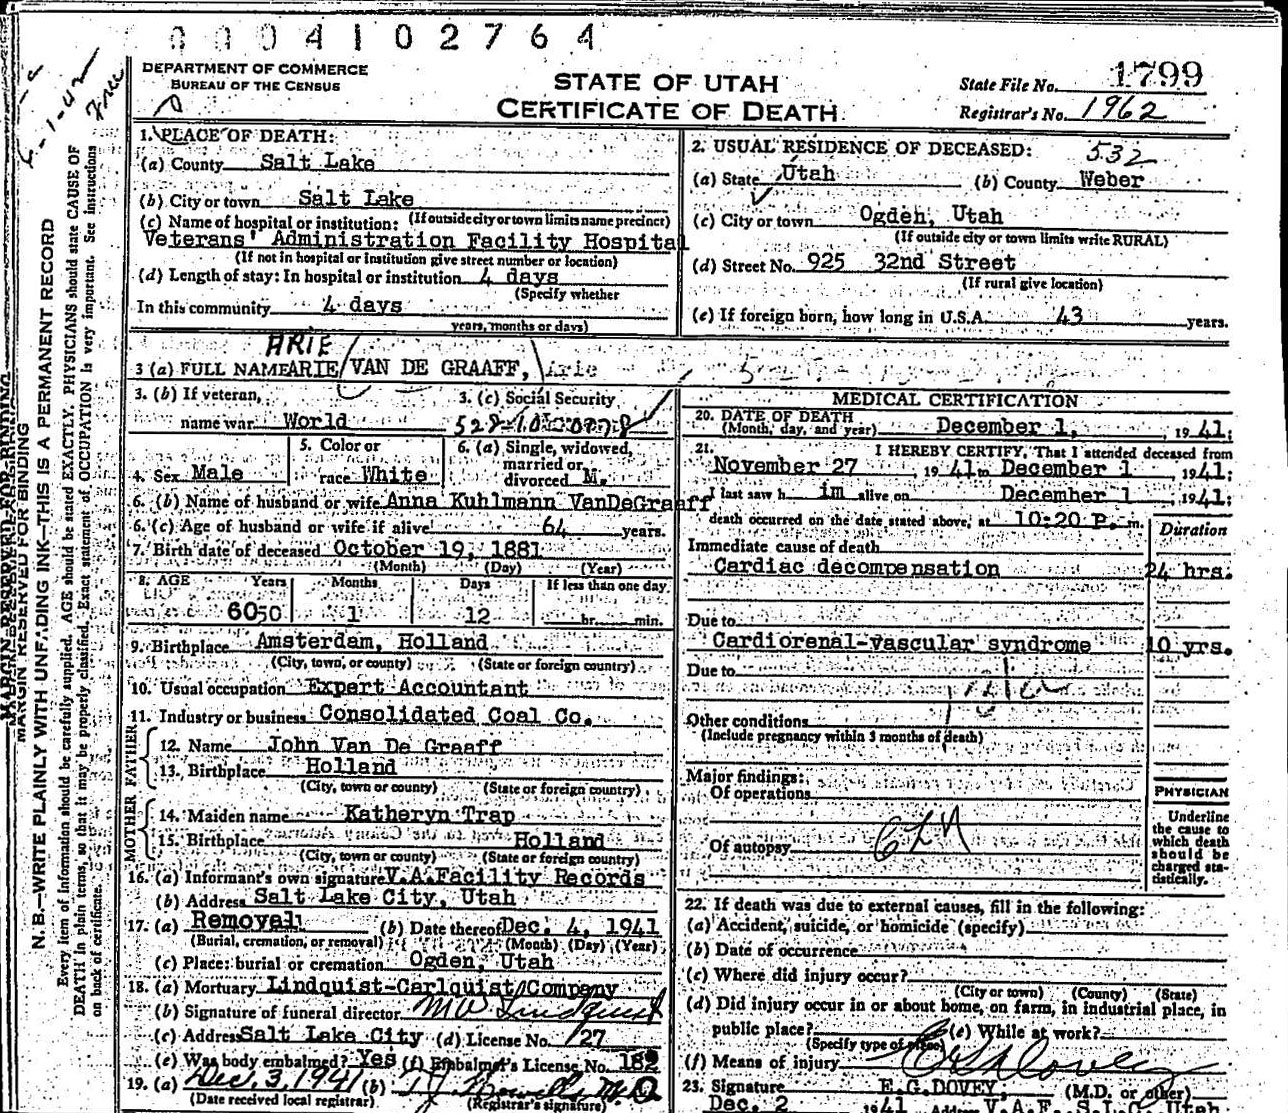 0004102764
DEPARTMENT OF COMMERCE
BUREAU OF THE CENSUS
STATE OF UTAH
CERTIFICATE OF DEATH
State File No. 1799
Registrar's No. 1962
1. PLACE OF DEATH:
(a) County Salt Lake
(b) City or town Salt Lake
(If outside city or town limits name precinct)
(c) Name of hospital or institution:
Veterans' Administration Facility Hospital
(If not in hospital or institution give street number or location)
(d) Length of stay: In hospital or institution 4 days
(Specify whether
In this community 4 days
years, months or days)
2. USUAL RESIDENCE OF DECEASED: 532
(a) State Utah (b) County Weber
(c) City or town Ogden, Utah
(If outside city or town limits write RURAL)
(d) Street No. 925 32nd Street
(If rural give location)
(e) If foreign born, how long in U.S.A. 43 years.
ARIE
3 (a) FULL NAME ARIE VAN DE GRAAFF, Arie
3. (b) If veteran, name war World
3. (c) Social Security
4. Sex Male
5. Color or race White
6. (a) Single, widowed, married or divorced M.
6. (b) Name of husband or wife Anna Kuhlmann VanDeGraaff
6. (c) Age of husband or wife if alive 64 years.
7. Birth date of deceased October 19, 1881
(Month) (Day) (Year)
8. AGE Years Months Days If less than one day
6050 1 12 hr. min.
9. Birthplace Amsterdam, Holland
(City, town, or county) (State or foreign country)
10. Usual occupation Expert Accountant
11. Industry or business Consolidated Coal Co.
FATHER
12. Name John Van De Graaff
13. Birthplace Holland
(City, town or county) (State or foreign country)
MOTHER
14. Maiden name Katheryn Trap
15. Birthplace Holland
(City, town or county) (State or foreign country)
16. (a) Informant's own signature V.A.Facility Records
(b) Address Salt Lake City, Utah
17. (a) Removal (b) Date thereof Dec. 4, 1941
(Burial, cremation, or removal) (Month) (Day) (Year)
(c) Place: burial or cremation Ogden, Utah
18. (a) Mortuary Lindquist-Carlquist Company
(b) Signature of funeral director M W Lindquist
(c) Address Salt Lake City (d) License No. 127
(e) Was body embalmed? Yes (f) Embalmer's License No. 182
19. (a) Dec. 3, 1941 (b) M.D.
(Date received local registrar) (Registrar's signature)
MEDICAL CERTIFICATION
20. DATE OF DEATH
(Month, day, and year) December 1, 1941:
21. I HEREBY CERTIFY, That I attended deceased from
November 27 1941 to December 1 1941:
I last saw him alive on December 1 1941:
death occurred on the date stated above, at 10:20 P. m.
Duration
Immediate cause of death
Cardiac decompensation 24 hrs.
Due to
Cardiorenal-vascular syndrome 10 yrs.
Due to
Other conditions
(Include pregnancy within 3 months of death)
Major findings:
Of operations
Of autopsy
PHYSICIAN
Underline
the cause to
which death
should be
charged sta-
tistically.
22. If death was due to external causes, fill in the following:
(a) Accident, suicide, or homicide (specify)
(b) Date of occurrence
(c) Where did injury occur?
(City or town) (County) (State)
(d) Did injury occur in or about home, on farm, in industrial place, in
public place? (e) While at work?
(Specify type of place)
(f) Means of injury
23. Signature E.G.DOVEY, (M.D. or other)
Dec. 2 1941 Address V.A.F. S.L.C. Utah
MARGIN RESERVED FOR BINDING
N. B.—WRITE PLAINLY WITH UNFADING INK—THIS IS A PERMANENT RECORD
Every item of information should be carefully supplied. AGE should be stated EXACTLY. PHYSICIANS should state CAUSE OF
DEATH in plain terms, so that it may be properly classified. Exact statement of OCCUPATION is very important. See instructions
on back of certificate.